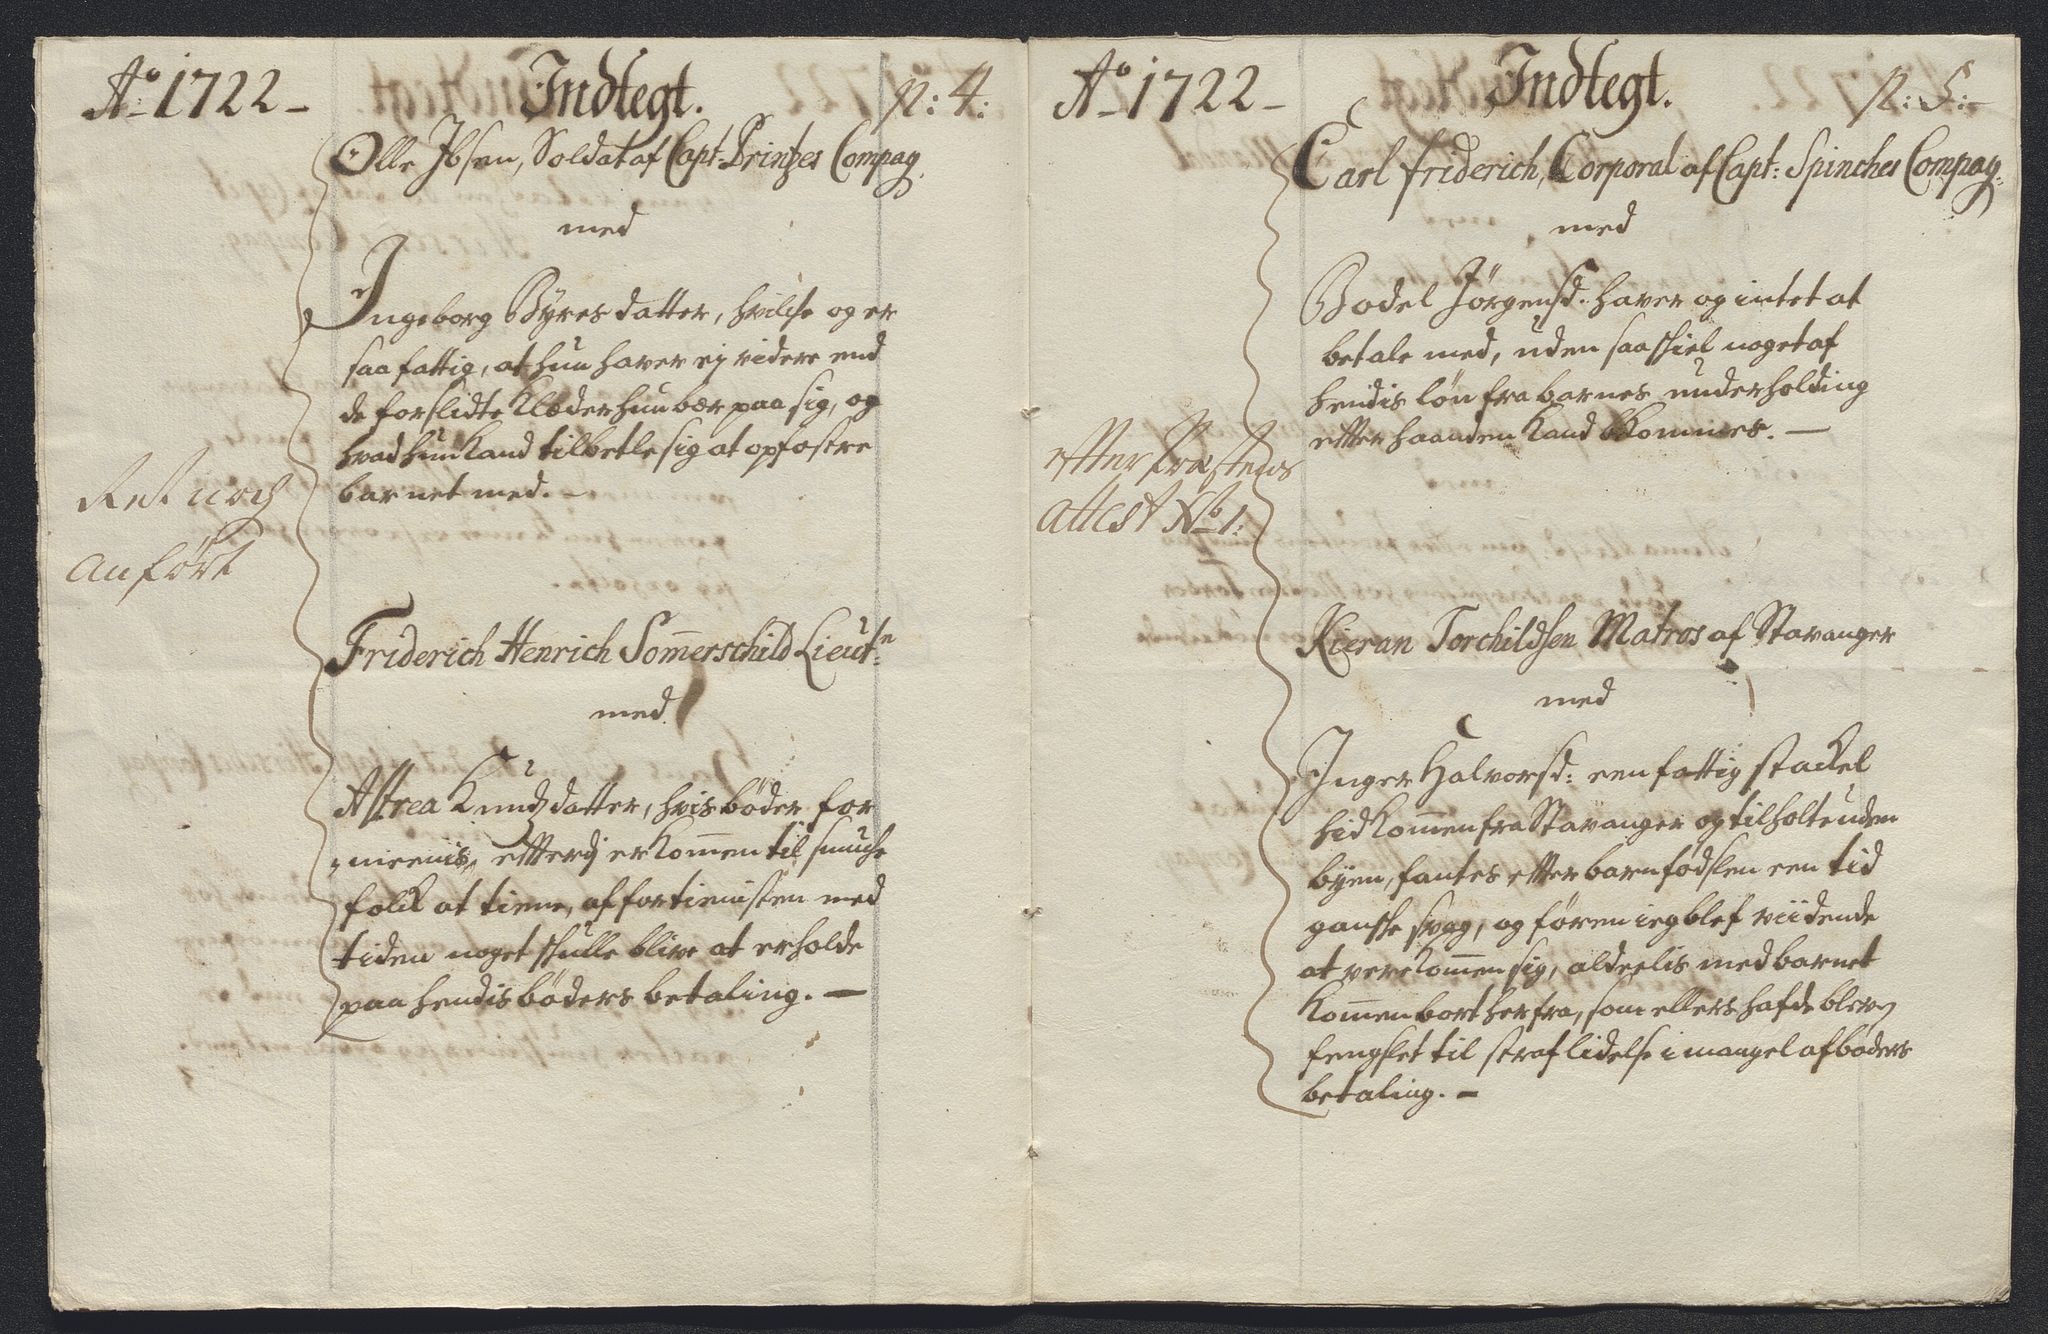 Ao 1722 – Indtegt. p: 4:
Olle Ibsen, Soldat af Capt: Printzes Compag.
med
Ingeborg Byresdatter, hvilche og er
saa fattig, at hun haver ej videre end
de forslidte Klæder hun bær paa sig, og
hvad hun kand tilbetle sig at opfostre
barnet med. –
Ret noch
anført
Friderich Henrich Som̅erschild Lieutn:
med
Astrea Knudsdatter, hvis bøder for
meenis, efter dj er kom̅en til smuche
folck at tiene, af fortienisten med
tiden noget skulle blive at erholde
paa hendis bøders betaling. –
Ao 1722 – Indtegt. p: 5: –
Carl Friderich, Corporal af Capt: Spinches Compag:
med
Bodel Jørgensd: haver og intet at
betale med, uden saa skiel noget af
hendis løn fra barnes underholding
efter haanden kand bekommes. –
efter Præstens
attest No 1:
Kieran Torchildsen Matros af Stavanger
med
Inger Halvorsd: een fattig stackel
hid kom̅en fra Stavanger og tilholt uden
byen, fantes efter barnfødslen een tid
gansche svag, og føren ieg blef viidende
at vere kom̅en sig, aldeelis med barnet
kom̅en bort herfra, som ellers hafde blev
fengslet til straf lidelse i mangel af bøders
betaling. –